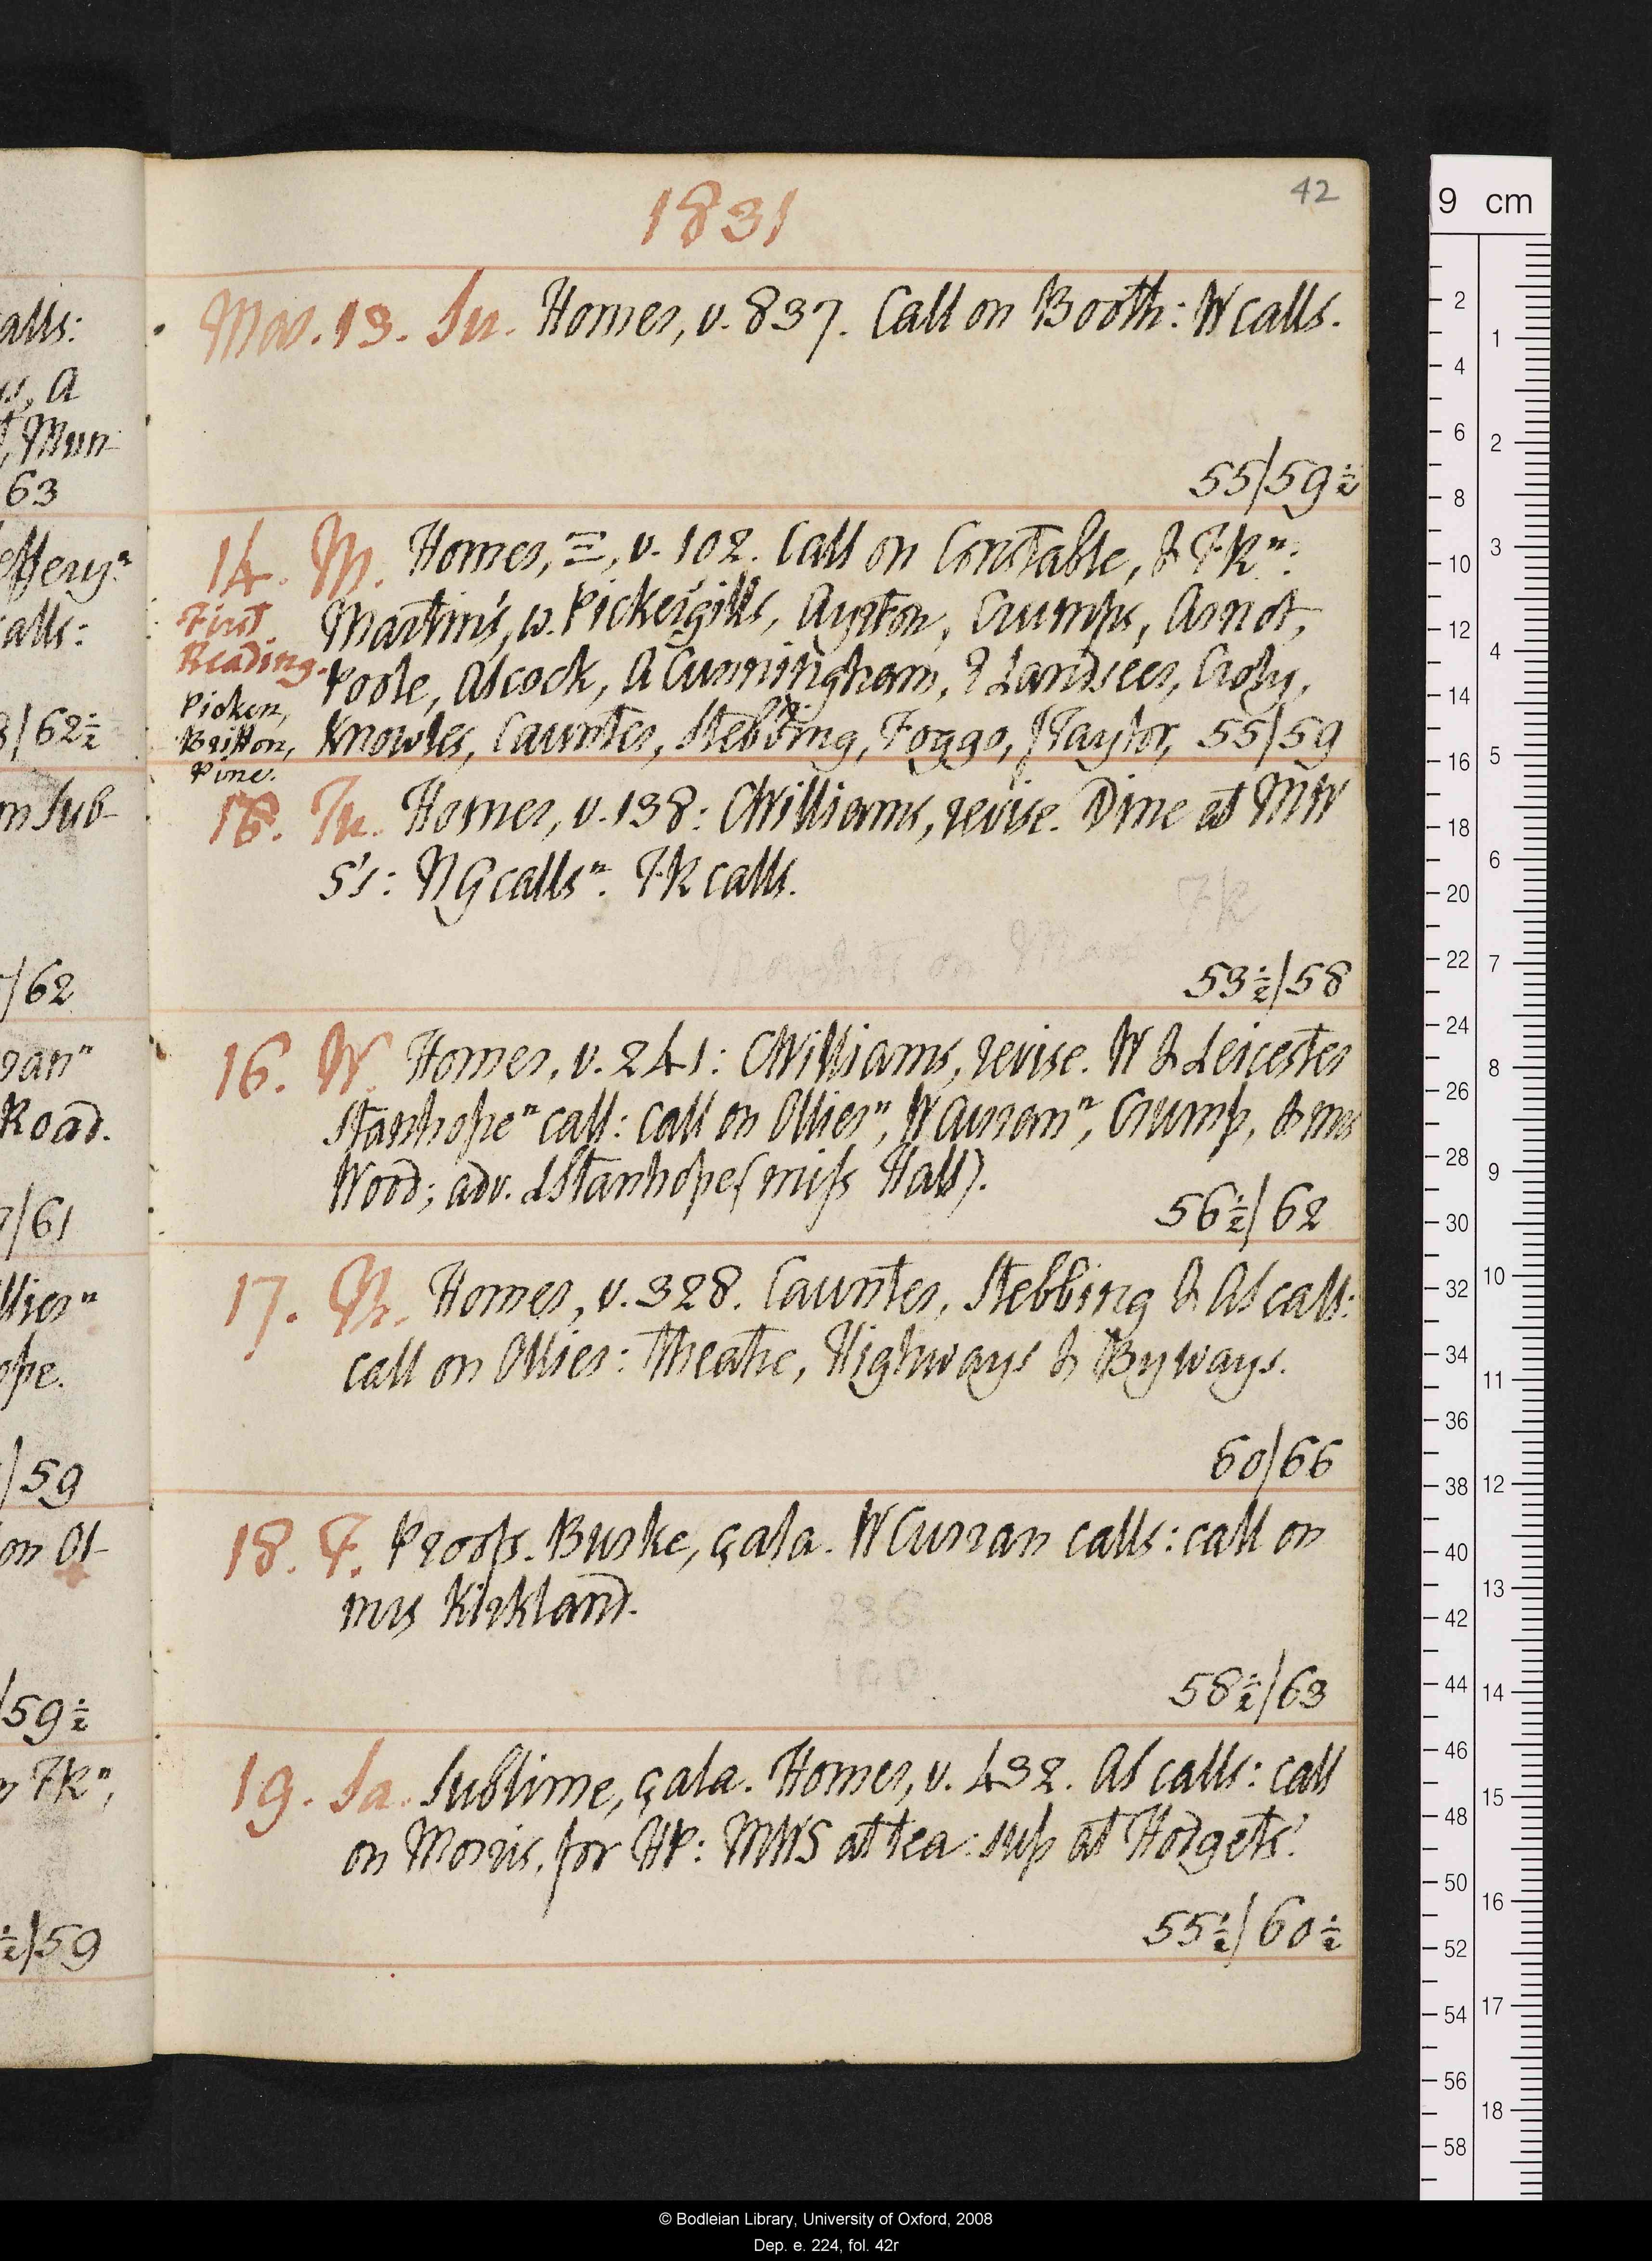 alls:
s, A
, Mun-
63
efferyⁿ
alls:
/62½
m Sub-
/62
ran"
Road.
/61
llier"
ope.
/59
on Ol-
/59½
FK",
½/59
42
1831
Mar. 13. Su. Homer, v. 837. Call on Booth: W calls.
55/59½
14. M. Homer, Ξ, v. 102. Call on Constable, & FKⁿ:
Martin's, w. Pickersgills, Ayrton, Crumps, Arnot,
Poole, Alcock, A Cunningham, 2 Landseers, Croly,
Knowles, Caunter, Stebbing, Foggo, J Taylor, 55/59
First
Reading.
Picken,
Britton,
Pine.
15. Tu. Homer, v. 138: CWilliams, revise. Dine at MW
S's: NG callsⁿ. FK calls.
FK
Thoughts on Man
53½/58
16. W. Homer, v. 241: CWilliams, revise. W & Leicester
Stanhopeⁿ call: call on Ollierⁿ, WCurranⁿ, Crump, & mrs
Wood; adv. LStanhope (miſs Hall).
56½/62
17. Th. Homer, v. 328. Caunter, Stebbing & AS call:
call on Ollier: Theatre, Highways & Byways.
60/66
18. F. Proofs. Burke, çala. WCurran calls: call on
mrs Kirkland.
236
100
58½/63
19. Sa. Sublime, çala. Homer, v. 432. AS calls: call
on Morris, for HP: MWS at tea: sup at Hodgets'.
55½/60½
9 cm
2
4
6
8
10
12
14
16
18
20
22
24
26
28
30
32
34
36
38
40
42
44
46
48
50
52
54
56
58
1
2
3
4
5
6
7
8
9
10
11
12
13
14
15
16
17
18
© Bodleian Library, University of Oxford, 2008
Dep. e. 224, fol. 42r